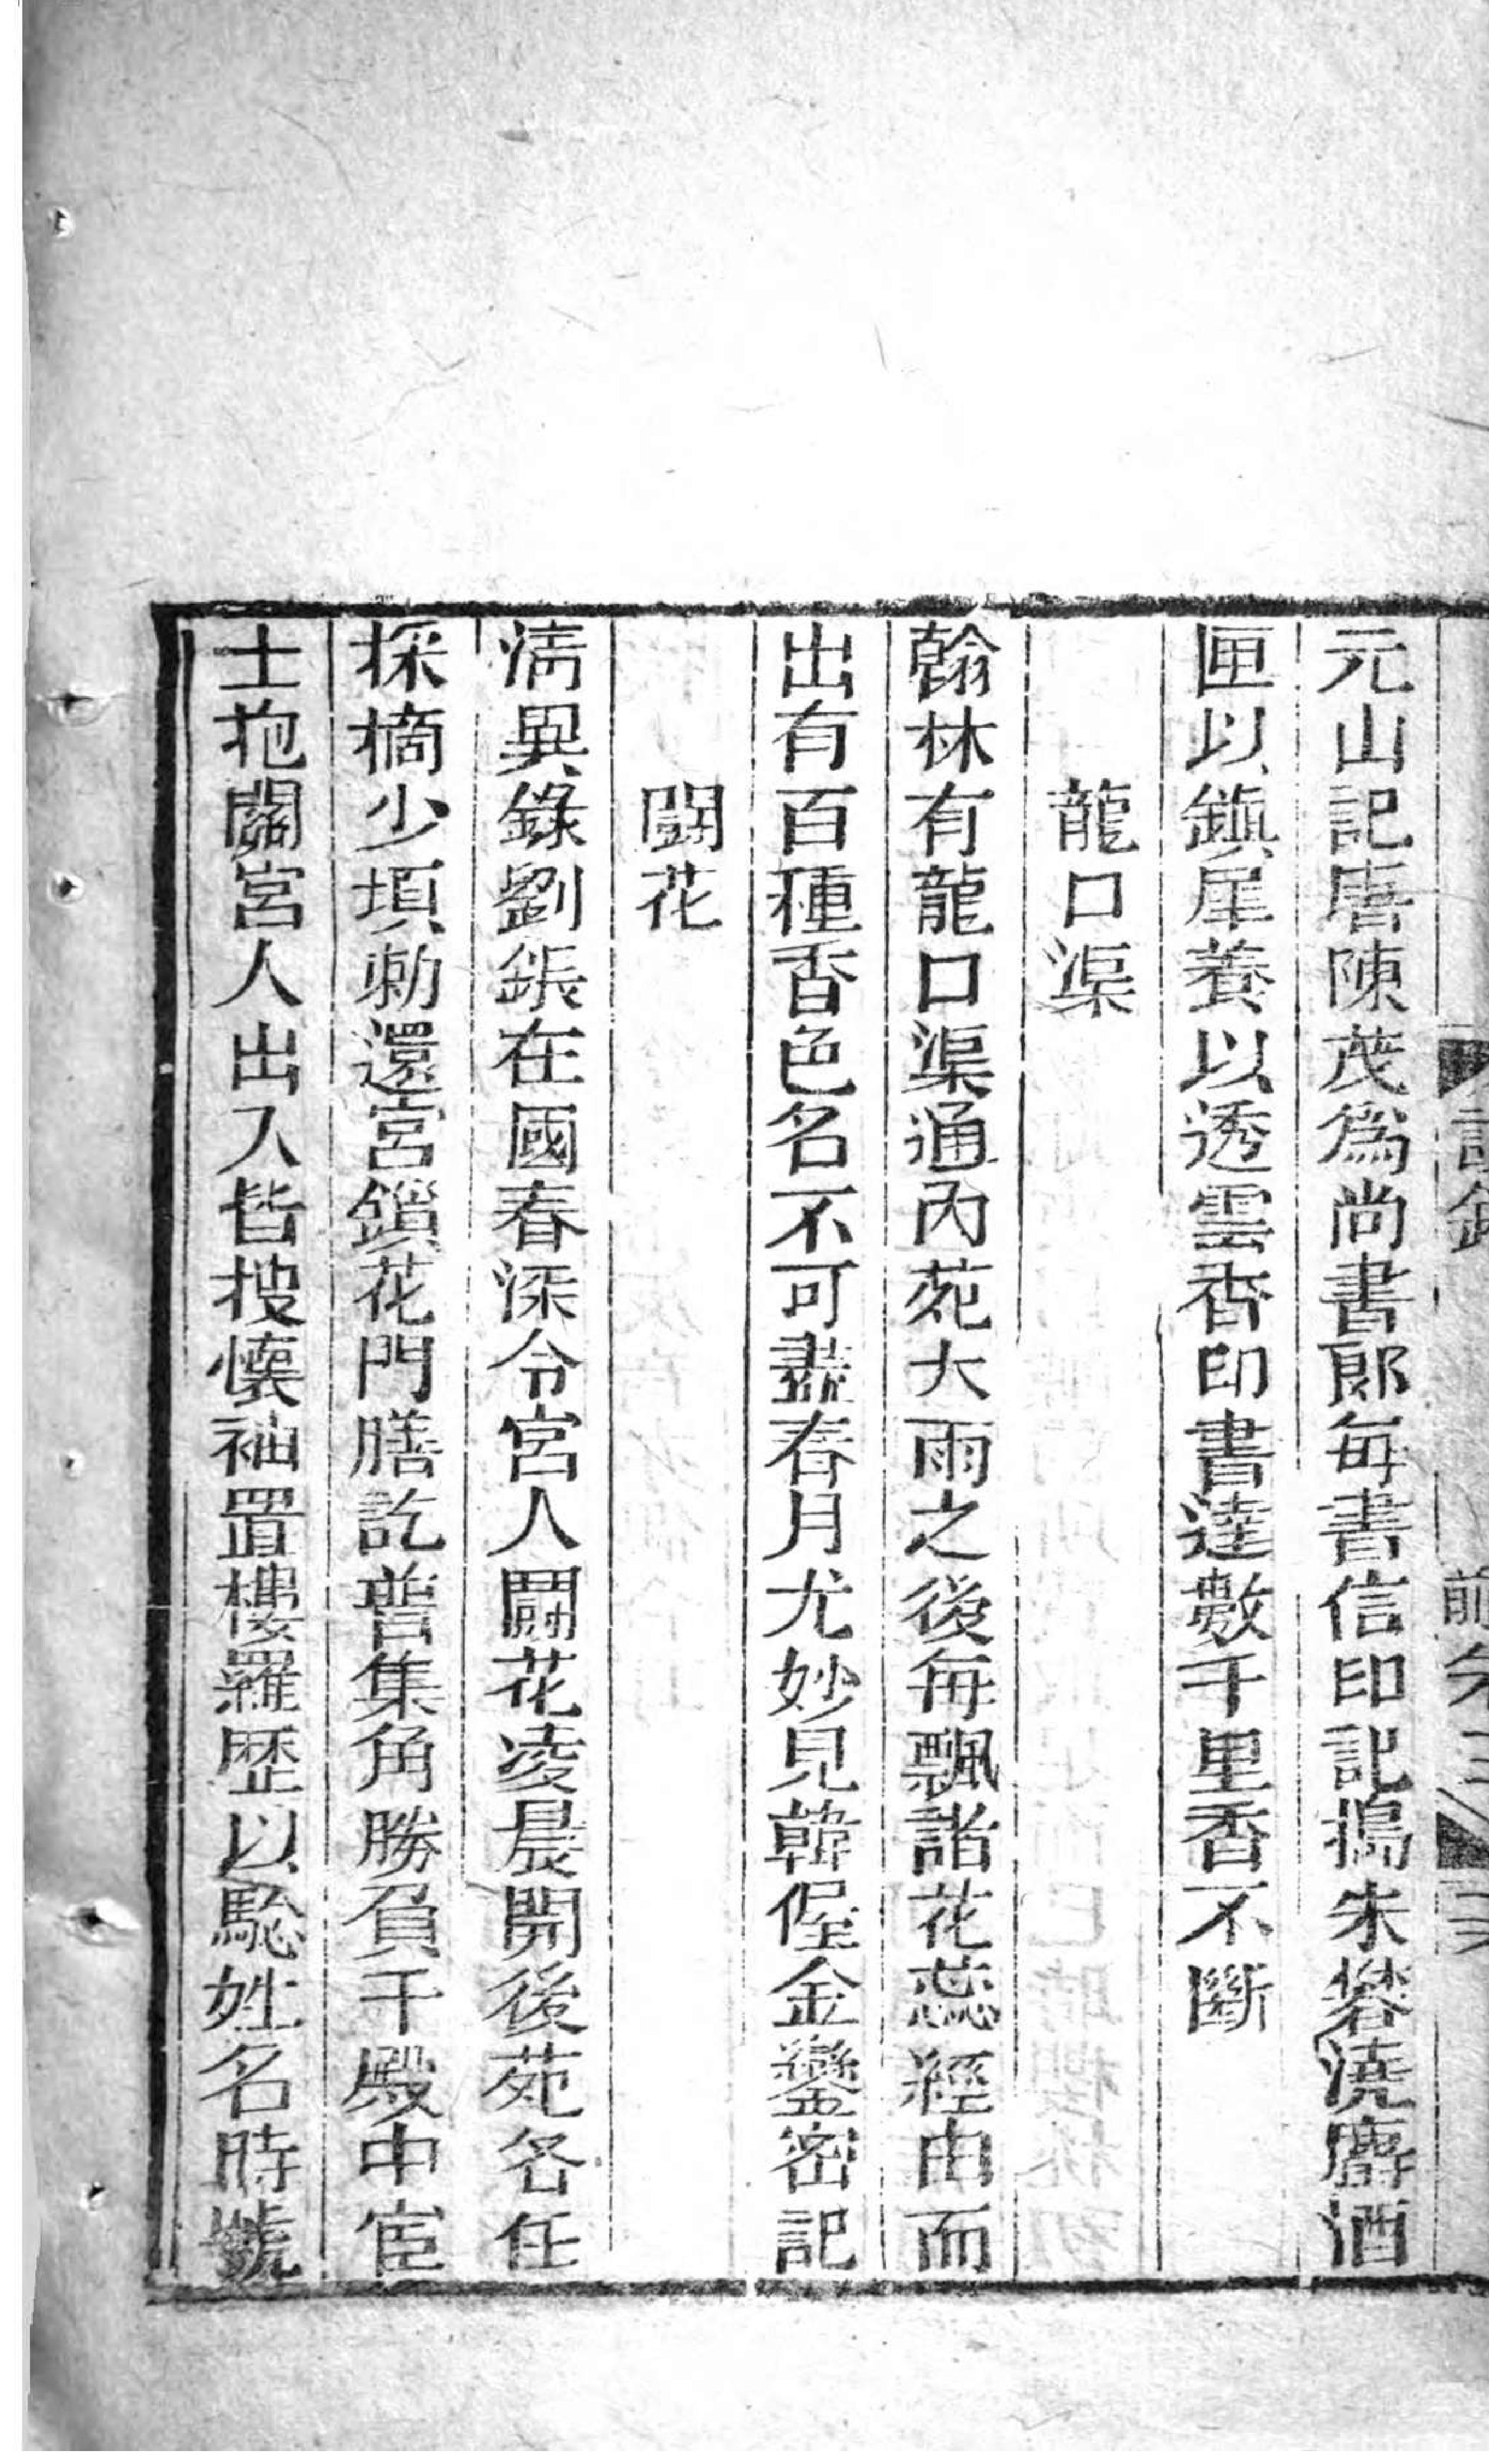 元山記唐陳茂爲尚書郎每書信印記搗朱礬澆麝酒
匣以鎮犀養以透雲香印書達數千里香不斷
龍口渠
翰林有龍口渠通內苑大雨之後每飄諸花蕊經由而
出有百種香色名不可盡春月尤妙見韓偓金鑾密記
鬪花
淸異錄劉鋹在國春深令宮人鬪花凌晨開後苑各任
採摘少頃勅還宮鎖花門膳訖普集角勝負于殿中宦
士抱關宮人出入皆搜懷袖置樓羅歷以驗姓名時號